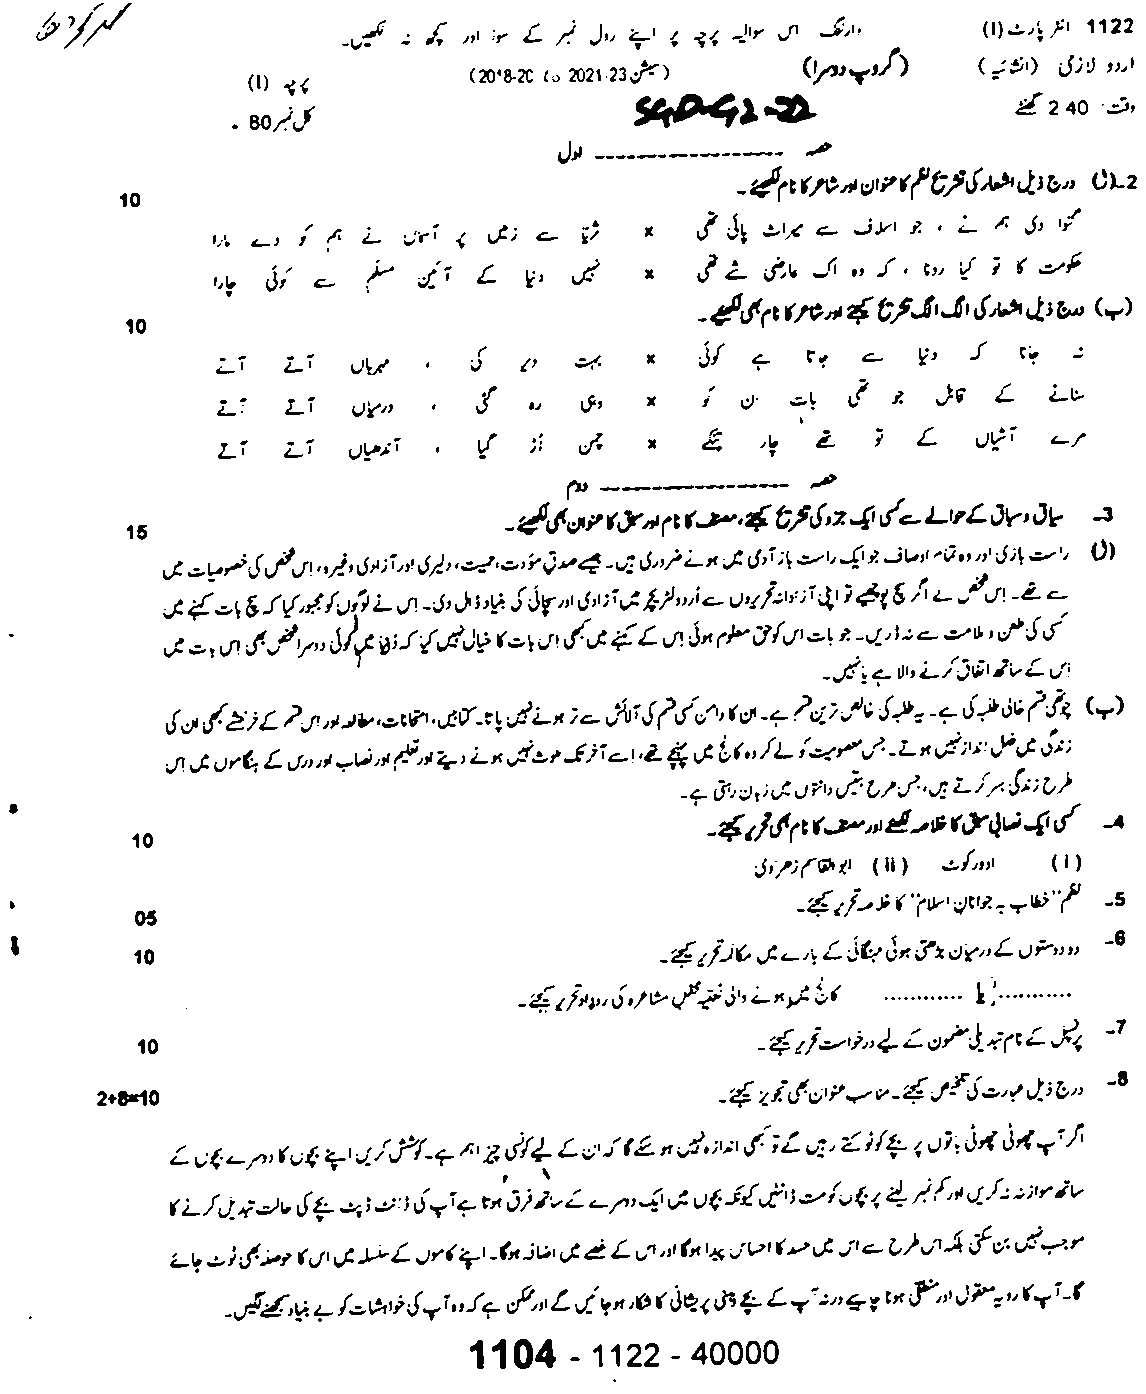 1122 انٹر پارٹ (I) وارننگ اس سوالیہ پرچہ پر اپنے رول نمبر کے سوا اور کچھ نہ لکھیں۔
اردو لازمی (انشائیہ) (گروپ دوسرا) (سیشن 23-2021 تا 20-2018) پرچہ (I)
وقت: 2.40 گھنٹے SGD-G2-22 کل نمبر 80
حصہ ------------------ اول
2۔(ا) درج ذیل اشعار کی تشریح نظم کا عنوان اور شاعر کا نام لکھیئے۔ 10
گنوا دی ہم نے ، جو اسلاف سے میراث پائی تھی × ثریا سے زمیں پر آسماں نے ہم کو دے مارا
حکومت کا تو کیا رونا ، کہ وہ اک عارضی شے تھی × نہیں دنیا کے آئین مسلم سے کوئی چارا
(ب) درج ذیل اشعار کی الگ الگ تشریح کیجئے اور شاعر کا نام بھی لکھیئے۔ 10
نہ جانا کہ دنیا سے جاتا ہے کوئی × بہت دیر کی ، مہرباں آتے آتے
سنانے کے قابل جو تھی بات ان کو × وہی رہ گئی ، درمیاں آتے آتے
مرے آشیاں کے تو تھے چار تنکے × چمن اڑ گیا ، آندھیاں آتے آتے
حصہ ------------------ دوم
3۔ سیاق و سباق کے حوالے سے کسی ایک جزو کی تشریح کیجئے، مصنف کا نام اور سبق کا عنوان بھی لکھیئے۔ 15
(ا) راست بازی اور وہ تمام اوصاف جو ایک راست باز آدمی میں ہونے ضروری ہیں۔ جیسے صدق مؤدت، حمیت، دلیری اور آزادی وغیرہ، اس شخص کی خصوصیات میں
سے تھے۔ اس شخص نے اگر سچ پوچھیے تو اپنی آزادانہ تحریروں سے اُردو لٹریچر میں آزادی اور سچائی کی بنیاد ڈال دی۔ اس نے لوگوں کو مجبور کیا کہ سچ بات کہنے میں
کسی کی طعن و ملامت سے نہ ڈریں۔ جو بات اس کو حق معلوم ہوئی اس کے کہنے میں کبھی اس بات کا خیال نہیں کیا کہ دنیا میں کوئی دوسرا شخص بھی اس بات میں
اس کے ساتھ اتفاق کرنے والا ہے یا نہیں۔
(ب) چوتھی قسم خالی طلبہ کی ہے۔ یہ طلبہ کی خالص ترین قسم ہے۔ ان کا دامن کسی قسم کی آلائش سے تر ہونے نہیں پاتا۔ کتابیں، امتحانات، مطالعہ اور اس قسم کے خرخشے کبھی ان کی
زندگی میں خلل انداز نہیں ہوتے۔ جس معصومیت کو لے کر وہ کالج میں پہنچے تھے، اسے آخر تک ملوث نہیں ہونے دیتے اور تعلیم اور نصاب اور درس کے ہنگاموں میں اس
طرح زندگی بسر کرتے ہیں، جس طرح بتیس دانتوں میں زبان رہتی ہے۔
4۔ کسی ایک نصابی سبق کا خلاصہ لکھیئے اور مصنف کا نام بھی تحریر کیجئے۔ 10
(i) اوور کوٹ (ii) ابوالقاسم زہراوی
5۔ نظم "خطاب بہ جوانان اسلام" کا خلاصہ تحریر کیجئے۔ 05
6۔ دو دوستوں کے درمیان بڑھتی ہوئی مہنگائی کے بارے میں مکالمہ تحریر کیجئے۔ 10
............ یا ............ کالج میں ہونے والی نعتیہ محفل مشاعرہ کی روداد تحریر کیجئے۔
7۔ پرنسپل کے نام تبدیلی مضمون کے لیے درخواست تحریر کیجئے۔ 10
8۔ درج ذیل عبارت کی تلخیص کیجئے۔ مناسب عنوان بھی تجویز کیجئے۔ 2+8=10
اگر آپ چھوٹی چھوٹی باتوں پر بچے کو ٹوکتے رہیں گے تو کبھی اندازہ نہیں ہو سکے گا کہ ان کے لیے کونسی چیز اہم ہے۔ کوشش کریں اپنے بچوں کا دوسرے بچوں کے
ساتھ موازنہ نہ کریں اور کم نمبر لینے پر بچوں کو مت ڈانٹیں کیونکہ بچوں میں ایک دوسرے کے ساتھ فرق ہوتا ہے آپ کی ڈانٹ ڈپٹ بچے کی حالت تبدیل کرنے کا
موجب نہیں بن سکتی بلکہ اس طرح سے اس میں حسد کا احساس پیدا ہوگا اور اس کے غصے میں اضافہ ہوگا۔ اپنے کاموں کے سلسلہ میں اس کا حوصلہ بھی ٹوٹ جائے
گا۔ آپ کا رویہ معقول اور منطقی ہونا چاہیے ورنہ آپ کے بچے ذہنی پریشانی کا شکار ہو جائیں گے اور ممکن ہے کہ وہ آپ کی خواہشات کو بے بنیاد سمجھنے لگیں۔
1104 - 1122 - 40000